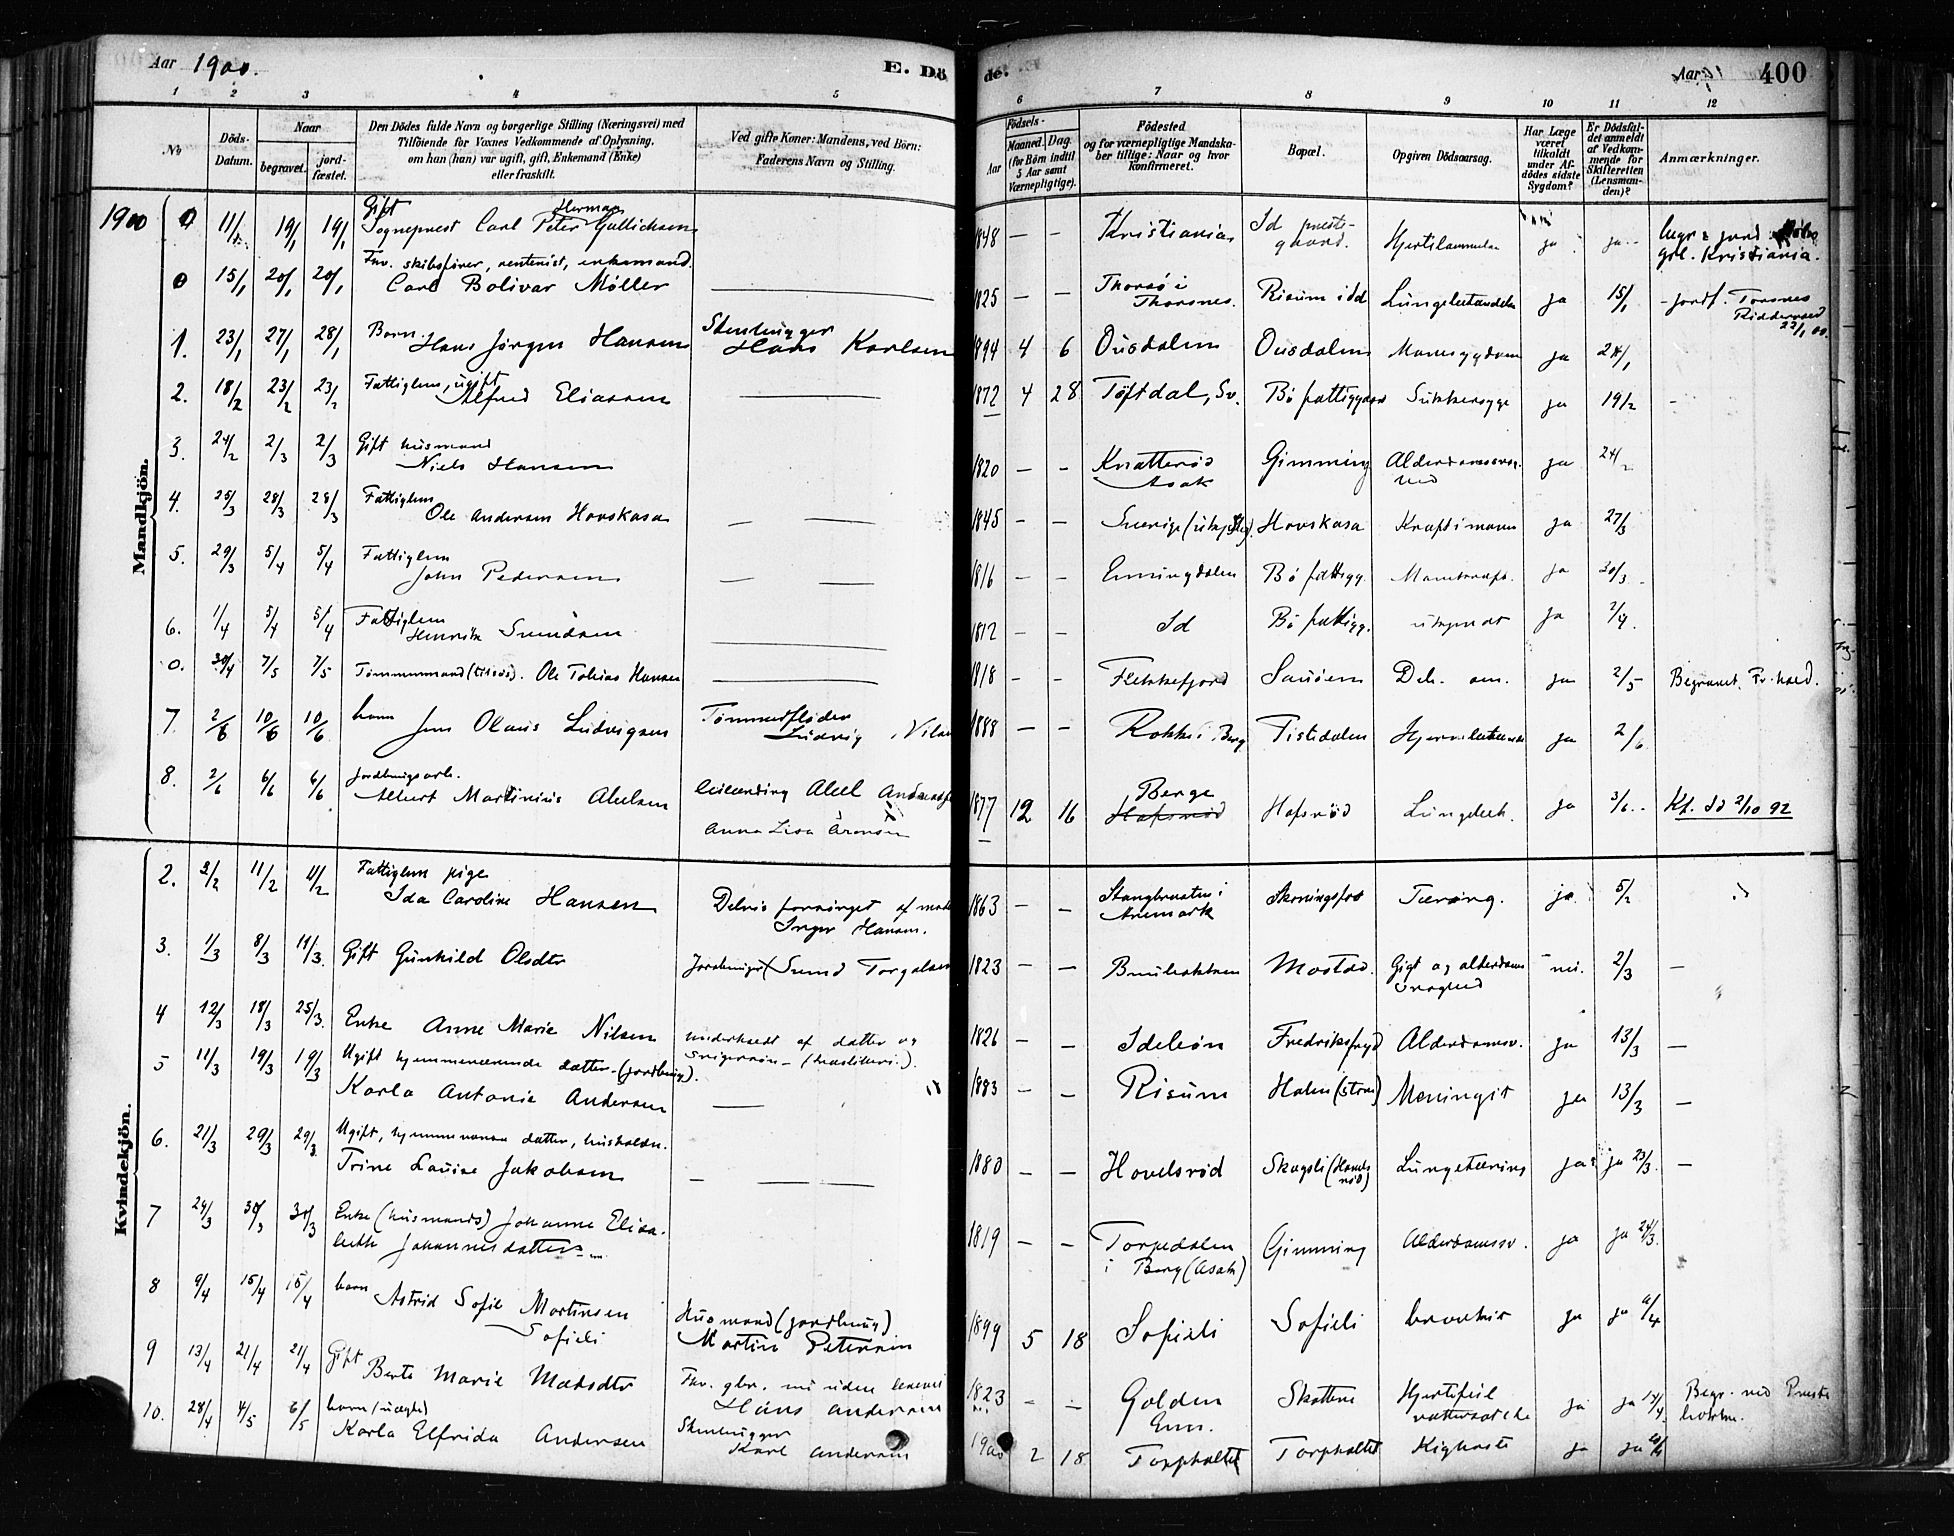 Aar 1900.
E. Döde.
Aar 400
1 2 3 4 5 6 7 8 9 10 11 12
No
Döds-Datum.
Naar
begravet.
jord-fæstet.
Den Dödes fulde Navn og borgerlige Stilling (Næringsvei) med
Tilföiende for Voxnes Vedkommende af Oplysning,
om han (hun) var ugift, gift, Enkemand (Enke)
eller fraskilt.
Ved gifte Koner: Mandens, ved Börn:
Faderens Navn og Stilling.
Födsels-
Aar
Maaned. Dag.
(for Börn indtil
5 Aar samt
Værnepligtige).
Födested
og for værnepligtige Mandska-
ber tillige: Naar og hvor
Konfirmeret.
Bopæl.
Opgiven Dödsaarsag.
Har Læge
været
tilkaldt
under Af-
dödes sidste
Sygdom?
Er Dödsfal-
det anmeldt
af Vedkom-
mende for
Skifteretten
(Lensman-
den)?
Anmærkninger.
Mandkjön.
1900 0 11/1 19/1 19/1 Gift Sogneprest Carl Peter Herman Gullichsen 1848 — — Kristiania Id prestegaard. ja ja Kristiania.
0 15/1 20/1 20/1 Fhv. skibsfører, rentenist, enkemand. Carl Bolivar Møller 1825 — — Thorsø i Thorsnes. Risum i Id Lungebetændelse ja 15/1 jordf. Torsnes
1. 23/1 27/1 28/1 Barn. Hans Jørgen Hansen Stenhugger Hans Karlsen 1894 4 6 Ousdalen Ousdalen Mavesygdom ja 24/1
2. 18/2 23/2 23/2 Fattiglem, ugift Alfred Eliassen 1872 4 28 Töftdal, Sv. Bø fattiggaard Sukkersyge ja 19/2 -
3. 24/2 2/3 2/3 Gift husmand Niels Hansen 1820 — — Knatterød Asak Gimming ja 24/2
4. 25/3 28/3 28/3 Fattiglem Ole Andersen Hovskasa 1845 — — Sverige Hovskasa ja 27/3
5. 29/3 5/4 5/4 Fattiglem John Pedersen 1816 — — Enningdalen Bø fattigg. ja 30/3
6. 1/4 5/4 5/4 Fattiglem Henrik Svendsen 1812 — — Id Bø fattigg. ja 2/4.
0. 30/4 7/5 7/5 Tømmermand (tilsøs). Ole Tobias Hansen 1818 — — Flekkefjord Sauøen Del. ja 2/5 Begravet. Fr.hald.
7 2/6 10/6 10/6 barn Jens Olaus Ludvigsen Tømmerfløder Ludvig Nilsen 1888 — — Rokke i Berg Tistedalen ja 2/6
8. 2/6 6/6 6/6 jordbrugsarb. Albert Martinius Abelsen Abel Andersen Anna Lisa Aronsen 1877 12 16 Berge Hafsrød Hafsrød ja 3/6 Kf. Id 2/10 92
Kvindekjön.
2. 2/2 11/2 11/2 Fattiglem pige Ida Caroline Hansen Delvis forsørget af moder Inger Hansen. 1863 — — Aremark Tæring. ja 5/2
3. 1/3 8/3 11/3. Gift Gunhild Olsdtr Svend Torgalsen 1823 — — Gigt og alderdomssvaghed nei. 2/3 —
4 12/3 18/3 25/3. Enke Anne Marie Nilsen underholdt af datter og svigersøn 1826 — — Ideleøn Fredriksfryd Alderdomsv. ja 13/3 —
5 11/3 19/3 19/3 Ugift hjemmeværende datter (jordbrug). Karla Antonie Andersen — 1883 — — Risum Holen (Store) Meningit ja 13/3 —
6. 21/3 29/3 29/3. Ugift, hjemmeværende datter, husholdn. Trine Louise Jakobsen 1880 — — Hovelsrød Lungetæring ja ja 23/3. —
7 24/3 30/3 31/3 Enke (husmands) Johanne Elisabeth Johannesdatter 1819 — — Torpedalen i Berg (Asak) Gimming Alderdomssv. ja ja 24/3.
8 9/4 15/4 15/4 barn Astrid Sofie Martinsen Sofieli Husmand (jordbrug) Martin Petersen 1899 5 18 Sofieli Sofieli ja ja
9 13/4 21/4 21/4 Gift Berte Marie Madsdtr Hans Andersen 1823 — — Skottene Hjertefeil vattersot ja ja 14/4 Begr. ved
10. 28/4 4/5 6/5 barn (uægte) Karla Elfrida Andersen Stenhugger Karl Andersen 1900 2 18 Torpholtet Torpholtet Kighoste ja